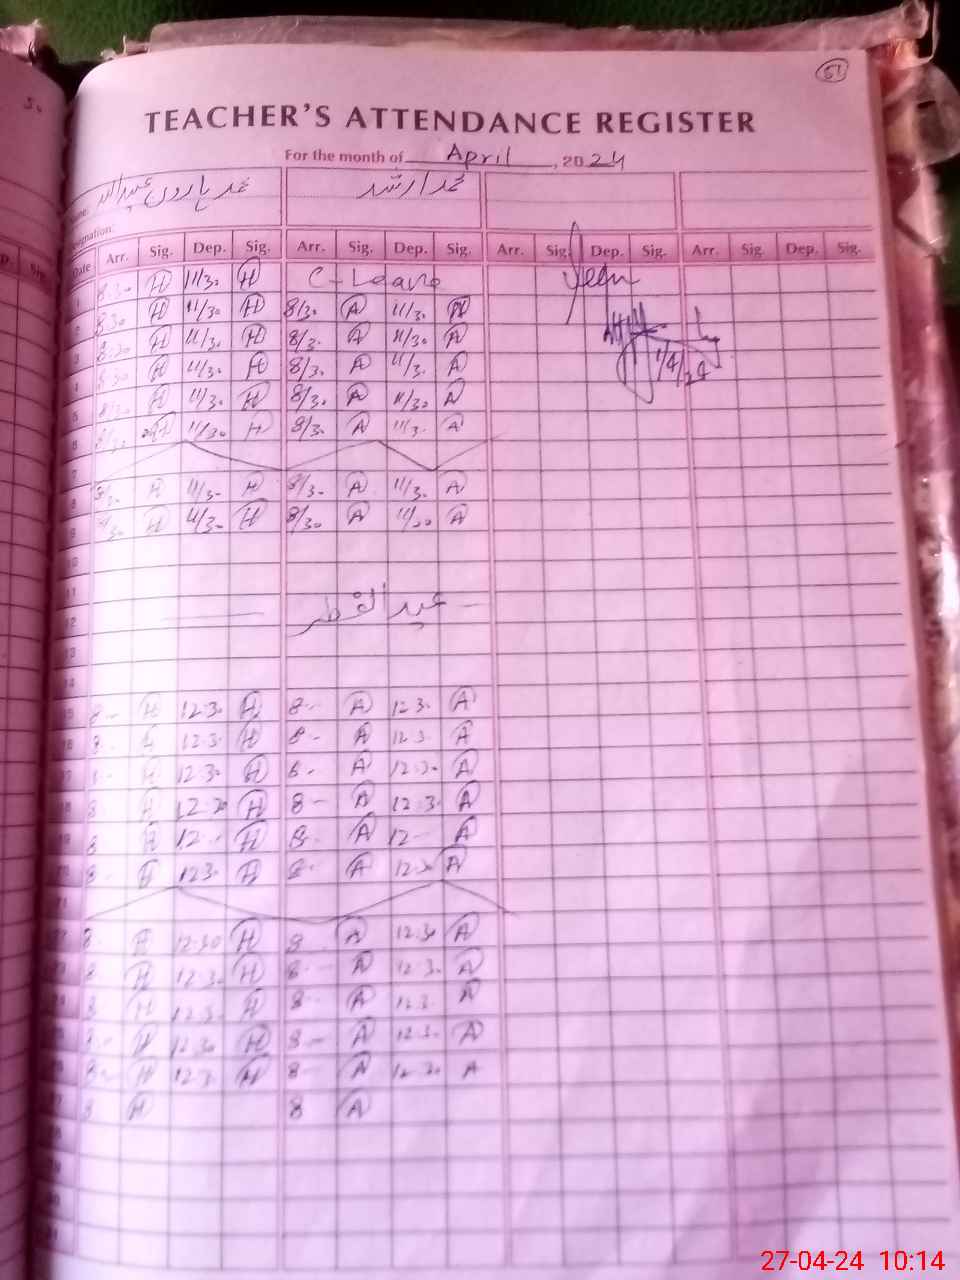 51
TEACHER'S ATTENDANCE REGISTER
For the month of April, 2024
محمد ہارون عبداللہ محمد ارشد
Date Arr. Sig. Dep. Sig. Arr. Sig. Dep. Sig. Arr. Sig. Dep. Sig. Arr. Sig. Dep. Sig.
1 8 30 H 11/30 H C-Leave
2 8 30 H 11/30 H 8/30 A 11/30 A
3 8:30 H 11/30 H 8/30 A 11/30 A
1/4/24
4 8 30 H 11/30 H 8/30 A 11/30 A
5 8/30 H 11/30 H 8/30 A 11/30 A
6 8/30 H 11/30 H 8/30 A 11/30 A
7
8 8/30 H 11/30 H 8/30 A 11/30 A
9 8/30 H 11/30 H 8/30 A 11/30 A
10
11
عید الفطر
12
13
14
15 8 - H 12.30 H 8 - A 12.30 A
16 8 - H 12.30 H 8 - A 12.30 A
17 8 - H 12.30 H 8 - A 12.30 A
18 8 H 12.30 H 8 - A 12.30 A
19 8 H 12 - H 8 - A 12 - A
20 8 - H 12.30 H 8 - A 12.30 A
21
22 8 - H 12.30 H 8 A 12.30 A
23 8 H 12.30 H 8 - A 12.30 A
24 8 H 12.30 H 8 - A 12.30 A
25 8 - H 12.30 H 8 - A 12.30 A
26 8 - H 12.30 H 8 - A 12.30 A
27 8 H 8 A
28
29
30
31
27-04-24 10:14